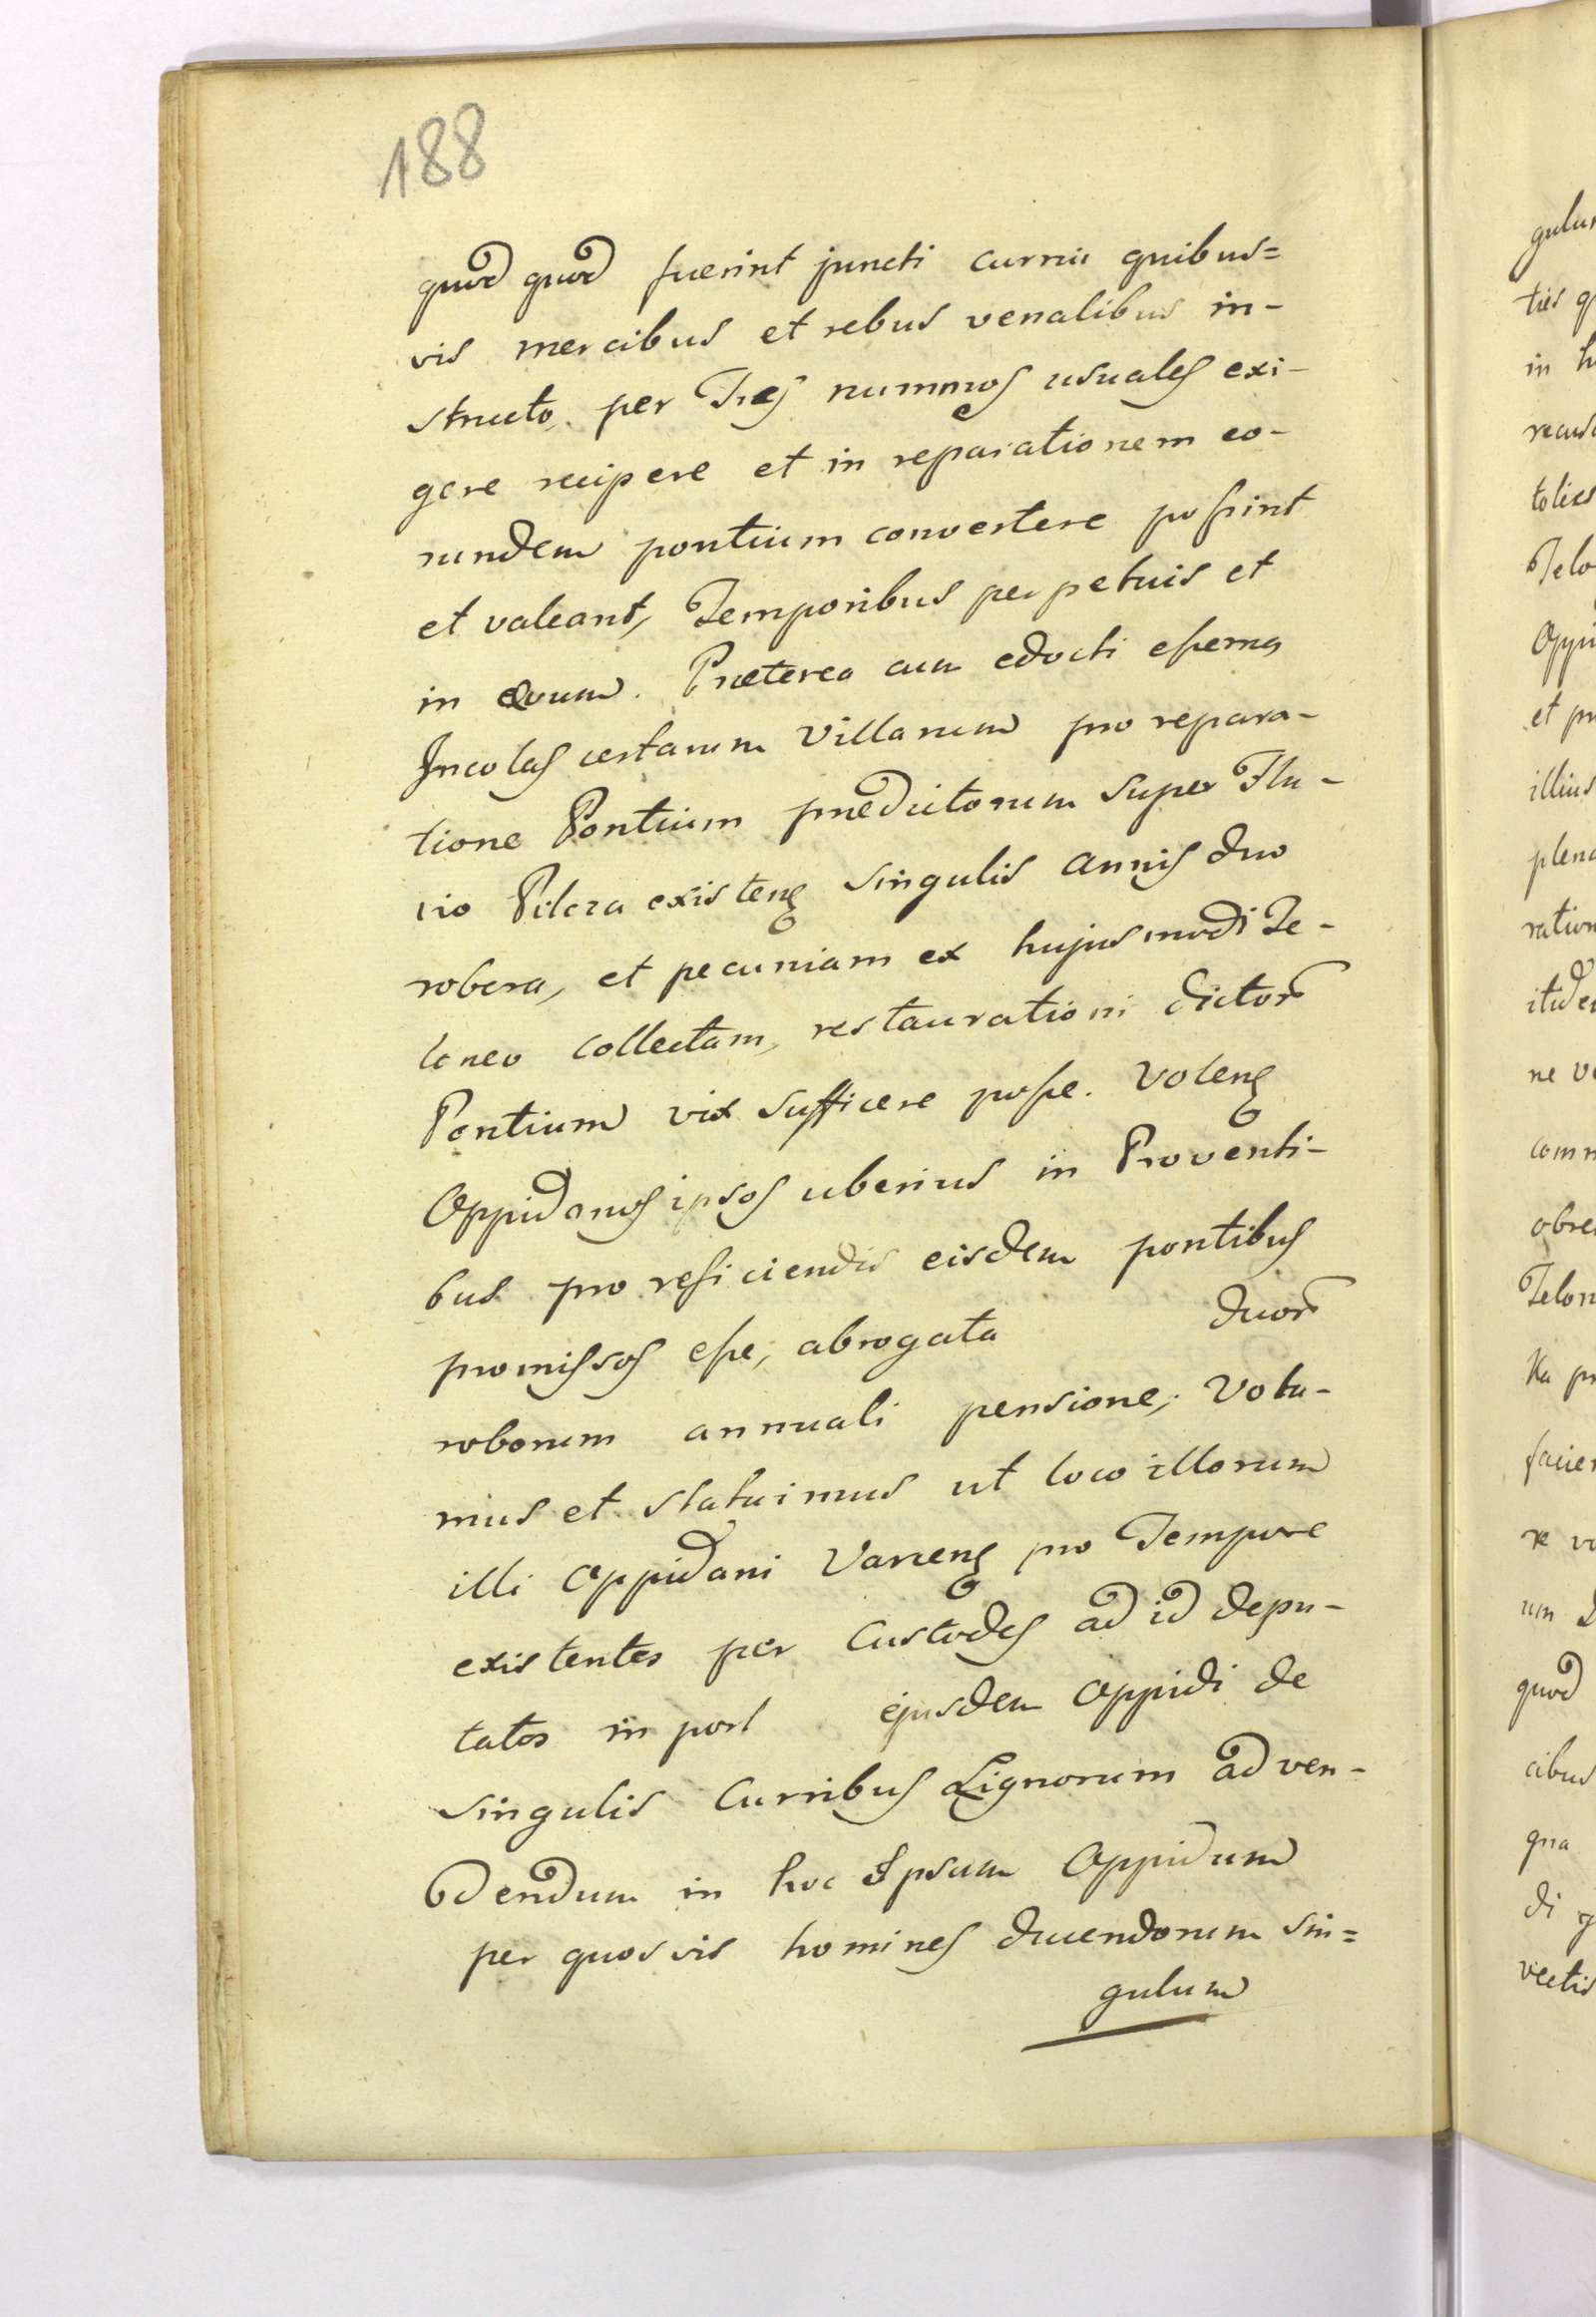 188
quod quod fuerint juncti currui quibus=
vis mercibus et rebus venalibus in-
structo, per Tres nummos usuales exi-
gere recipere et in reparationem eo-
rundem pontium convertere possint
et valeant, Temporibus perpetuis et
in ævum. Præterea cum edocti essemus
Incolas certarum Villarum pro repara-
tione Pontium prædictorum super Flu-
vio Pilcza existeng singulis annis duo
robora, et pecuniam ex hujusmodi Te-
loneo collectam, restaurationi dictor
Pontium vix sufficere posse. Voleng
Oppidanos ipsos uberius in Proventi-
bus pro reficiendis eisdem pontibus
promissos esse, abrogata duor
roborum annuali pensione, Volu-
mus et statuimus ut loco illorum
illi Oppidani Varieng pro Tempore
existentes per Custodes ad id depu-
tatos in port ejusdem Oppidi de
singulis Curribus Lignorum ad ven-
dendum in hoc Ipsum Oppidum
per quosvis homines ducendorum sin=
gulum
gulum
ties
in
recus
tolies
Telo
Oppi
et pr
illius
plena
ration
itide
ne
comm
obre
Telon
ita pr
facie
re
um
quod
cibus
qua
di
vectis